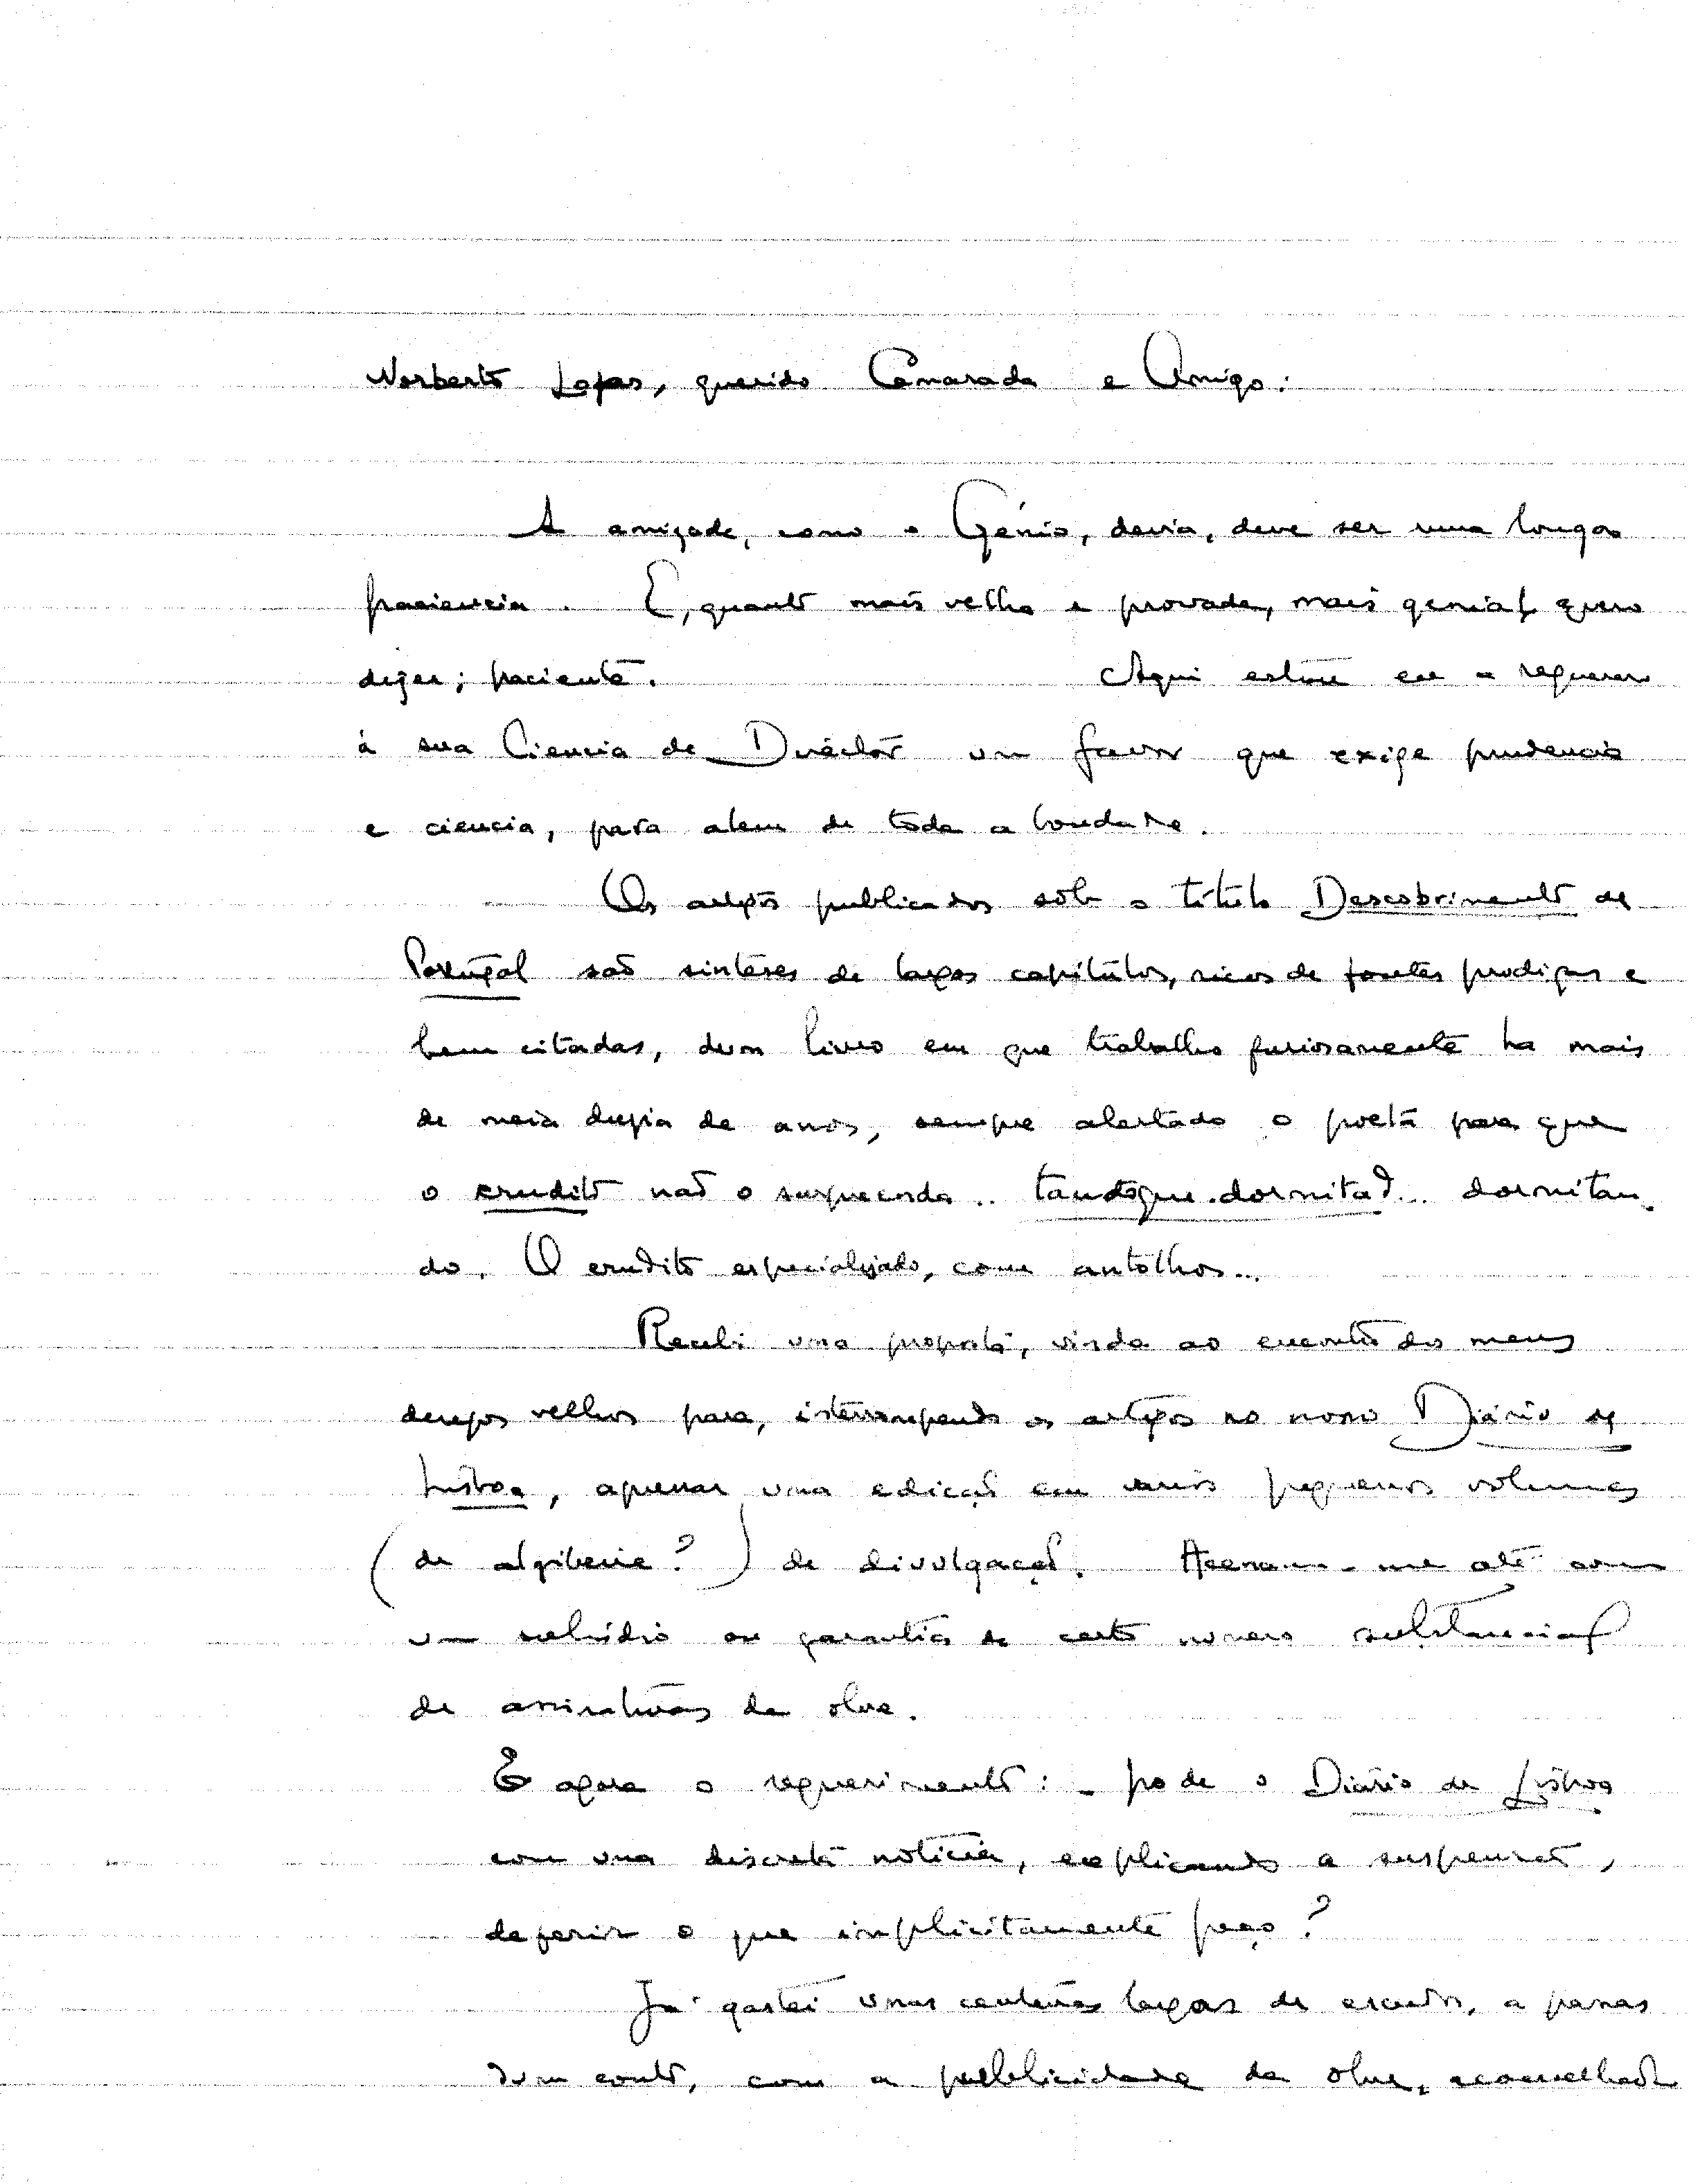 Norberto Lopes, querido Camarada e Amigo:
A amizade, como o Génio, devia, deve ser uma longa
paciencia. E, quanto mais velha e provada, mais genial quero
dizer; paciente. Aqui estou eu a requerer
á sua Ciencia de Director um favor que exige prudencia
e ciencia, para alem de toda a bondade.
Os artigos publicados sob o título Descobrimento de
Portugal saõ sinteses de largos capítulos, ricos de fontes prodigas e
bem citadas, dum livro em que trabalho furiosamente ha mais
de meia duzia de anos, sempre alertado o poeta para que
o erudito naõ o surpreenda.. dormitan
do. O erudito especializado, com antolhos...
Recebi uma proposta, vinda ao encontro dos meus
desejos velhos para, interrompendo os artigos no nosso Diário de
Lisboa, apressar uma edicaõ em varios pequenos volumes
(de algibeira?) de divulgaçaõ. Acenam-me até com
um subsídio ou garantia de certo número substancial
de assinaturas da obra.
E agora o requerimento: - pode o Diário de Lisboa
com uma discreta notícia, explicando a suspensaõ,
deferir o que implicitamente peço?
Já gastei umas centenas largas de escudos, a penas
dum conto, com a publicidade da obra, aconselhada